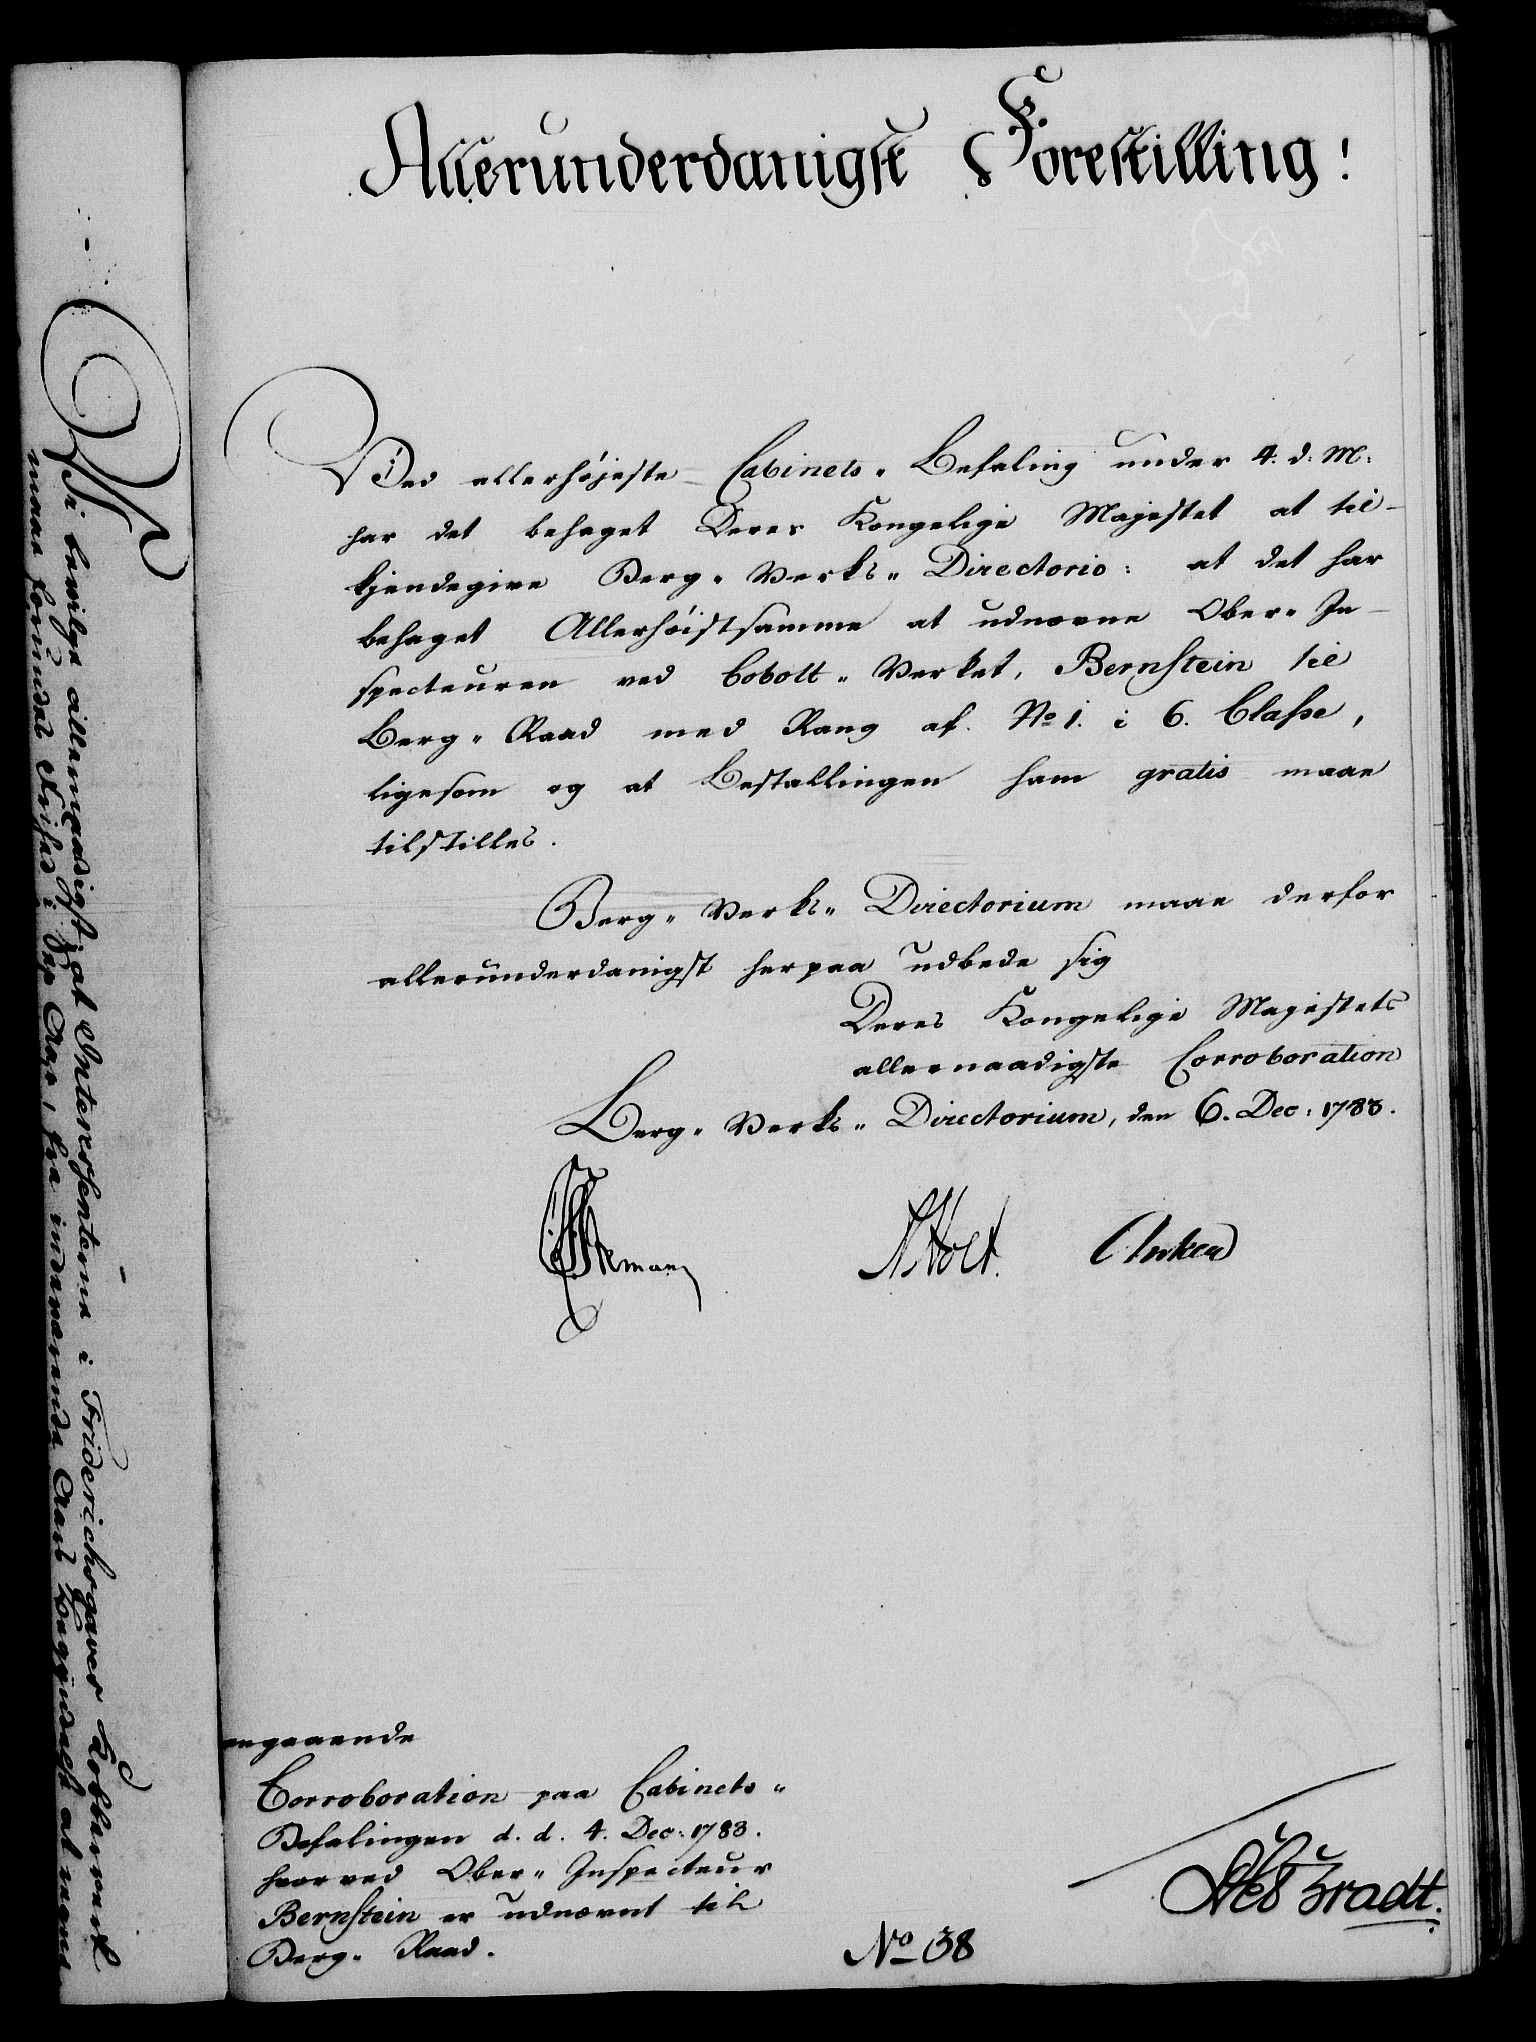 Allerunderdanigst Forestilling!
Ved allerhøjeste Cabinets„ Befaling under 4. d. M:
har det behaget Deres Kongelige Majestet at til-
kjendegive Berg„ Verks„ Directorio: at det har
behaget Allerhøistsamme at udnævne Ober„ In-
specteuren ved Cobolt„ Verket, Bernstein til
Berg„ Raad med Rang af No 1. i 6. Classe,
ligesom og at Bestallingen ham gratis maae
tilstilles.
Berg„ Verks„ Directorium maae derfor
allerunderdanigst herpaa udbede sig
Deres Kongelige Majestets
allernaadigste Corroboration
Berg„ Verks„ Directorium, den 6. Dec: 1788.
N. Holt. Anker
angaaende
Corroboration paa Cabinets„
Befalingen d. d. 4. Dec: 1788.
hvorved Ober„ Inspecteur
Bernstein er udnævnt til
Berg„ Raad.
No 38
Vi bevilge allernaadigst, at Interessenterne i Friderichsgaves Kobberverk
maae forundes Friehed i Sex Aar, fra indeværende Aars Begyndelse at regne